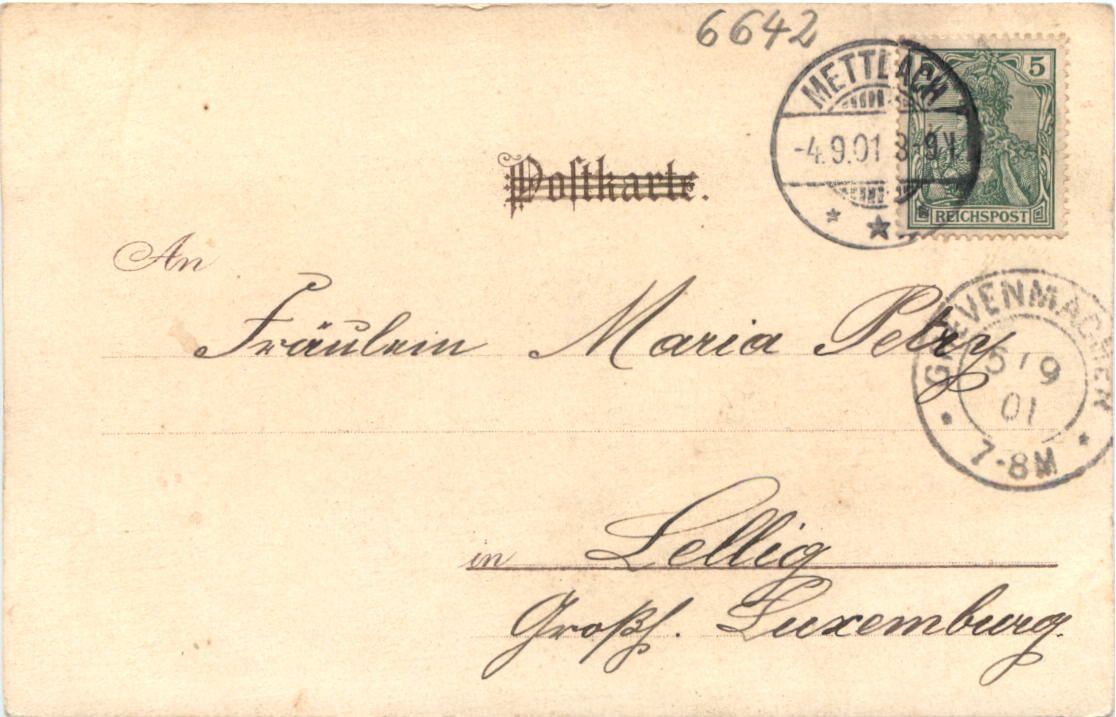 6642
5
METTLACH
-4.9.01 8-9V.
REICHSPOST
Postkarte.
An
Fräulein Maria Petry
GREVENMACHER
5/9
01
7-8M
in Lellig
Großh. Luxemburg.